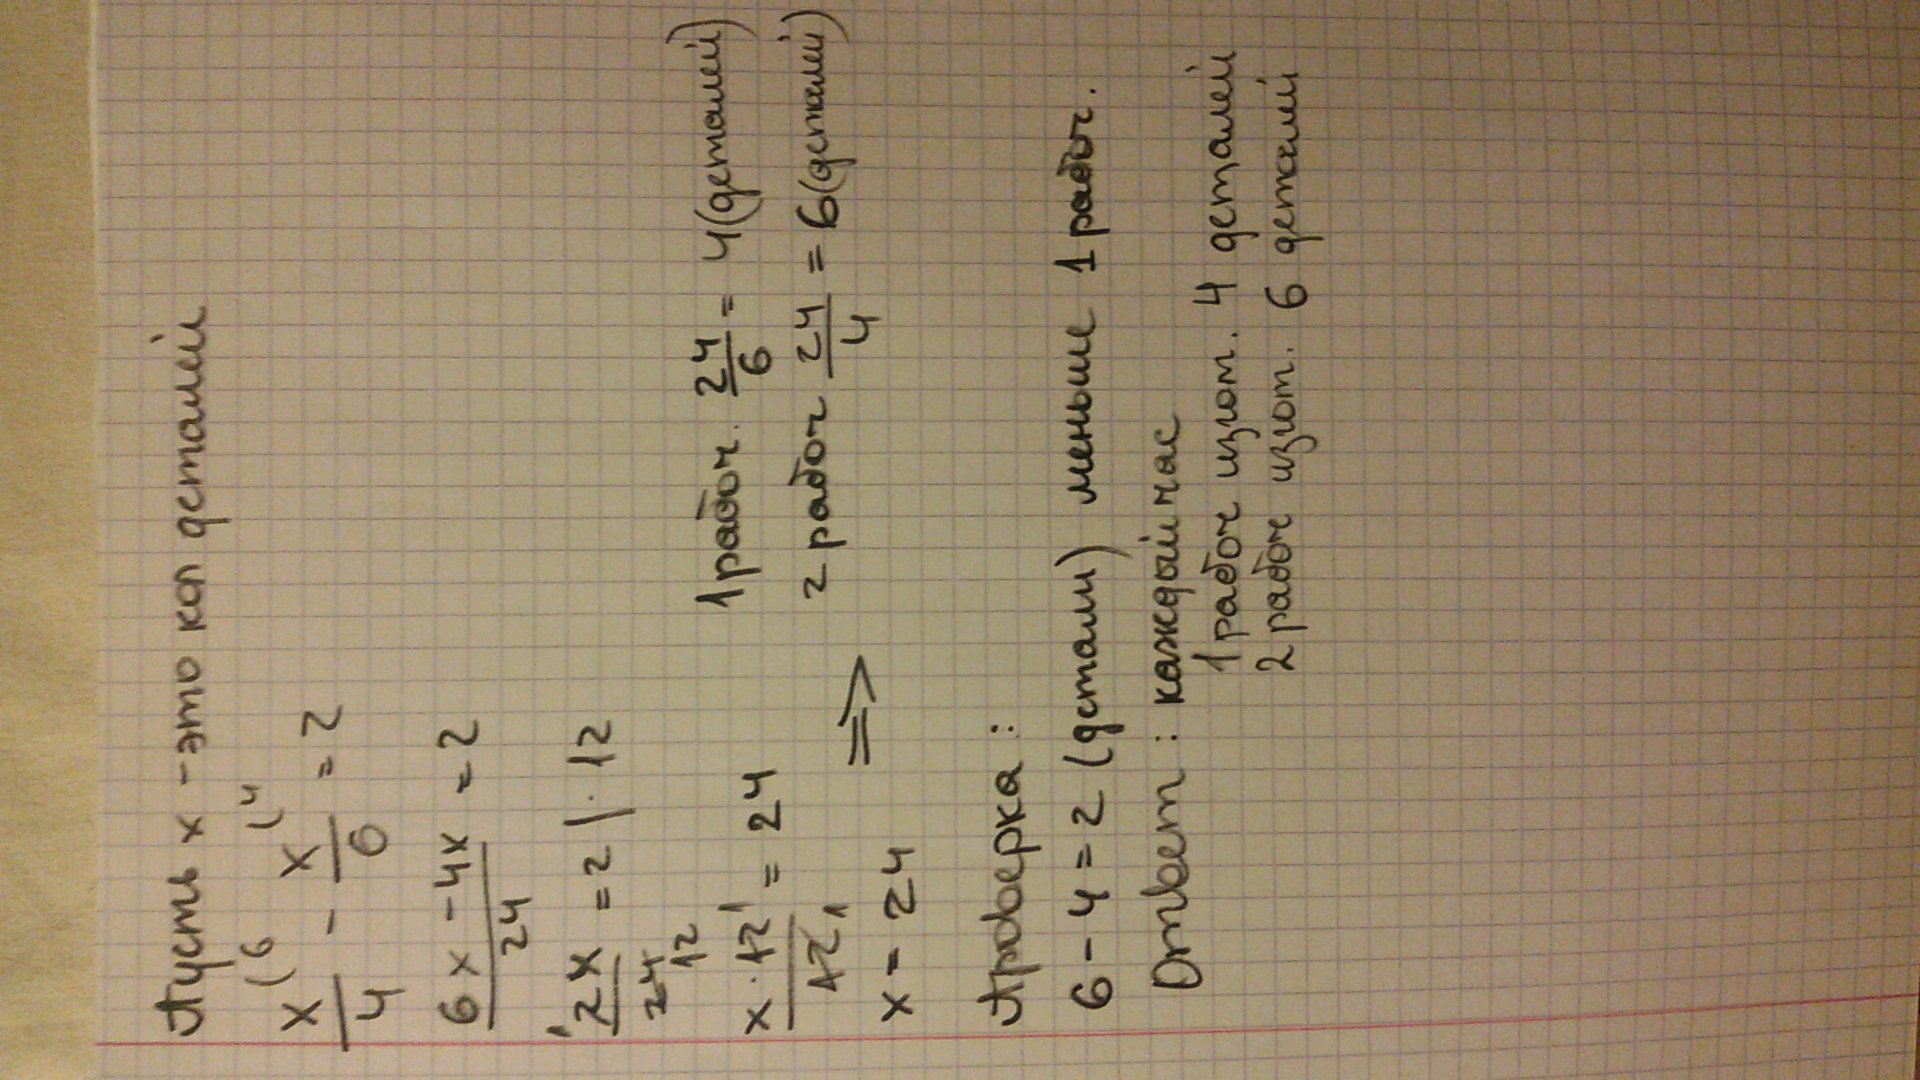 Пусть x - это кол деталей
x(6/4 - x(4/6 = 2
6x - 4x/24 = 2
2x/24 12 = 2 | · 12
x · 12/12 = 24
x = 24 => 1 рабоч. 24/6 = 4 (деталей)
2 рабоч 24/4 = 6 (деталей)
Проверка:
6 - 4 = 2 (детали) меньше 1 рабоч.
Ответ: каждый час
1 рабоч изгот. 4 деталей
2 рабоч изгот. 6 деталей